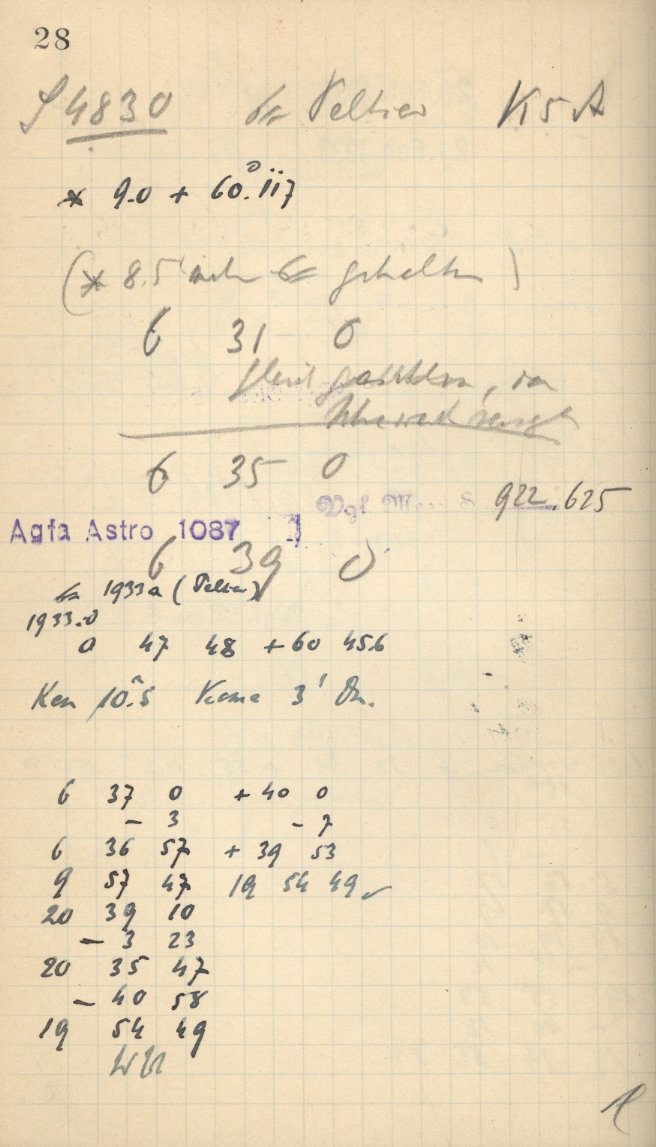 28
S 4830 Peltier K5A
* 9.0 + 60.117
(* 8.5 gehalten)
6 31 0
6 35 0
922.625
Agfa Astro 1087
6 39 0
1933a (Peltier)
1933.0
0 47 48 +60 45.6
Kern 10.5 Koma 3' Dm.
6 37 0 +40 0
- 3 - 7
6 36 57 +39 53
9 57 47 19 54 49 ✓
20 39 10
- 3 23
20 35 47
- 40 58
19 54 49